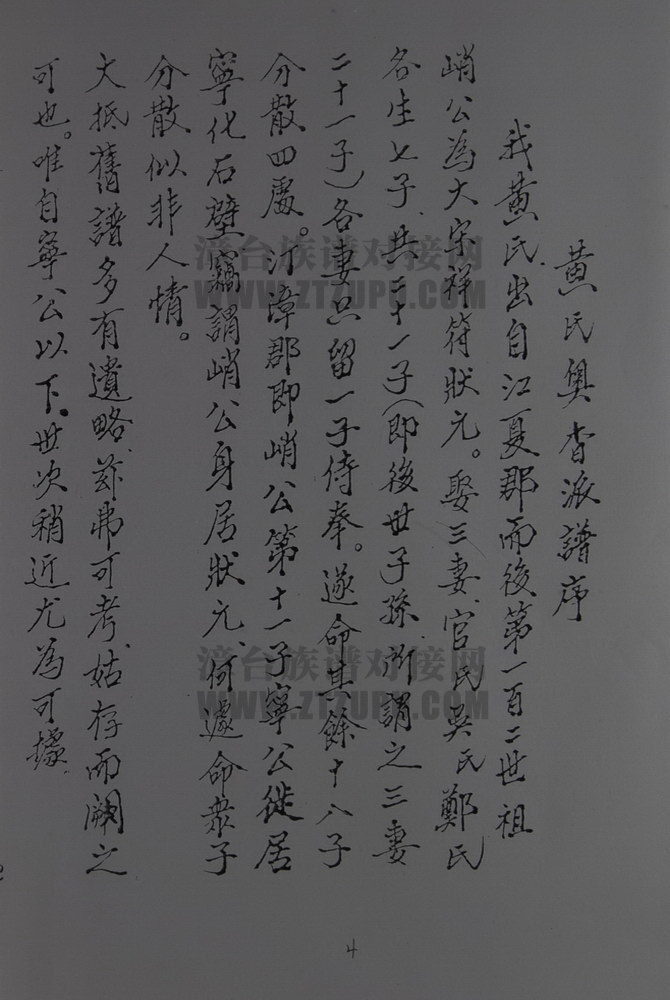 黃氏奧杳派譜序
我黃氏、出自江夏郡而後第一百二世祖
峭公為大宋祥符狀元。娶三妻、官氏吳氏鄭氏
各生七子、共二十一子（即後世子孫、所謂之三妻
二十一子）各妻只留一子侍奉。遂命其餘十八子
分散四處。汀漳郡即峭公第十一子寧公徙居
寧化石壁竊謂峭公身居狀元、何遽命眾子
分散似非人情。
大抵舊譜多有遺略、茲弗可考、姑存而闕之
可也。唯自寧公以下、世次稍近尤為可據、
4
漳台族谱对接网
WWW.ZTZUPU.COM
漳台族谱对接网
WWW.ZTZUPU.COM